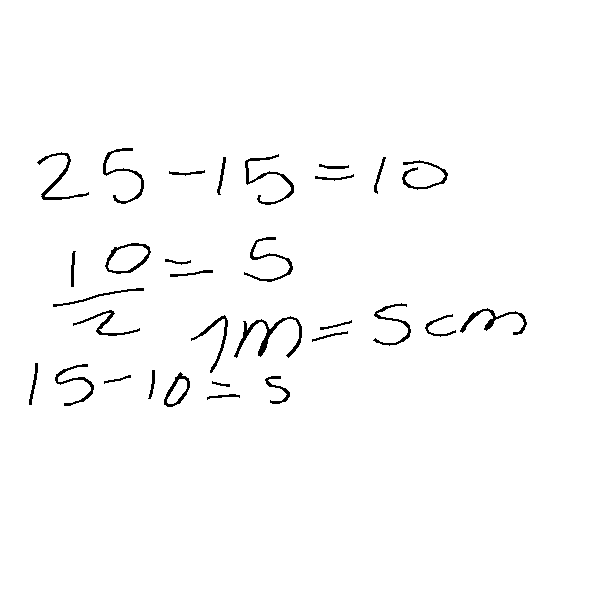 25-15=10
10/2=5
1m=5cm
15-10=5